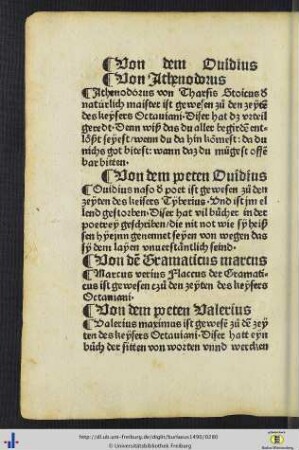 ¶Von dem Ouidius
¶Von Athenodorus
¶Athenodorus von Tharsis Stoicus d
natürlich maister ist gewesen zů den zeytẽ
des keysers Octauiani. Diser hat dz vrteil
geredt. Denn wiß das du aller begirdẽ ent-
lößt seyest. wenn du da hin kõmest. da du
nichs got bitest. wann daz du mügest offẽ
bar bitten.
¶Von dem peten Ouidius
¶Ouidius naso d poet ist gewesen zů den
zeyten des keisers Tyberius. Vnd ist jm el
lend gestorben. Diser hat vil bücher in der
poetrey geschriben. die nit not wie sy heis
sen hyerinn genennet seyen von wegen das
sy dem layen vnuerstäntlich seind.
¶Von dẽ Gramaticus marcus
¶Marcus verius Flaccus der Gramati-
cus ist gewesen zů den zeyten des keysers
Octauiani.
¶Von dem peten Valerius
¶Valerius maximus ist gewesẽ zů dẽ zey
ten des keysers Octauiani. Diser hatt eyn
bůch der sitten von worten vnnd wercken
http://dl.ub.uni-freiburg.de/diglit/burlaeus1490/0280
© Universitätsbibliothek Freiburg